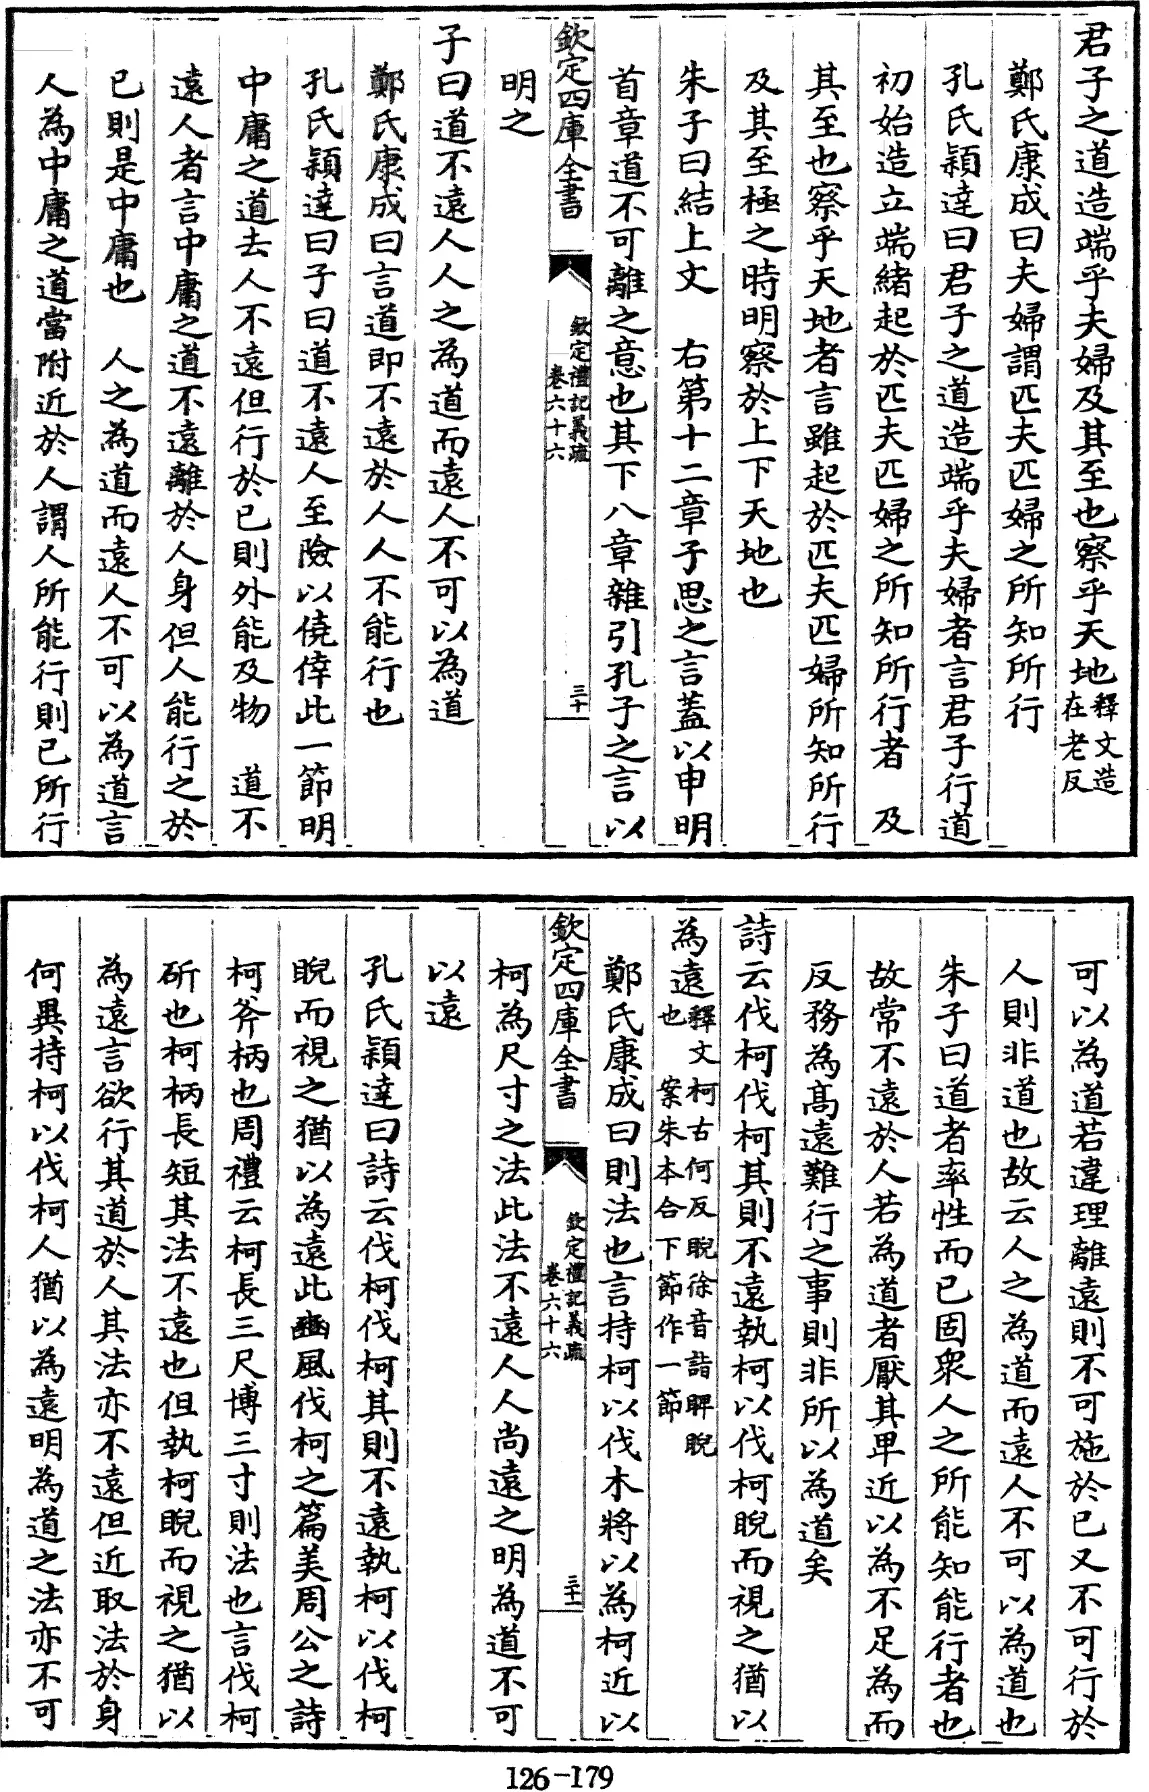 君子之道造端乎夫婦及其至也察乎天地釋文造在老反
鄭氏康成曰夫婦謂匹夫匹婦之所知所行
孔氏穎達曰君子之道造端乎夫婦者言君子行道
初始造立端緒起於匹夫匹婦之所知所行者　及
其至也察乎天地者言雖起於匹夫匹婦所知所行
及其至極之時明察於上下天地也
朱子曰結上文　右第十二章子思之言蓋以申明
首章道不可離之意也其下八章雜引孔子之言以
欽定四庫全書
欽定禮記義疏
卷六十六
三十
明之
子曰道不遠人人之為道而遠人不可以為道
鄭氏康成曰言道即不遠於人人不能行也
孔氏穎達曰子曰道不遠人至險以僥倖此一節明
中庸之道去人不遠但行於己則外能及物　道不
遠人者言中庸之道不遠離於人身但人能行之於
已則是中庸也　人之為道而遠人不可以為道言
人為中庸之道當附近於人謂人所能行則已所行
可以為道若違理離遠則不可施於已又不可行於
人則非道也故云人之為道而遠人不可以為道也
朱子曰道者率性而已固衆人之所能知能行者也
故常不遠於人若為道者厭其卑近以為不足為而
反務為高遠難行之事則非所以為道矣
詩云伐柯伐柯其則不遠執柯以伐柯睨而視之猶以
為遠釋文柯古何反睨徐音詣睥睨也　案朱本合下節作一節
鄭氏康成曰則法也言持柯以伐木將以為柯近以
欽定四庫全書
欽定禮記義疏
卷六十六
三十一
柯為尺寸之法此法不遠人人尚遠之明為道不可
以遠
孔氏穎達曰詩云伐柯伐柯其則不遠執柯以伐柯
睨而視之猶以為遠此豳風伐柯之篇美周公之詩
柯斧柄也周禮云柯長三尺博三寸則法也言伐柯
斫也柯柄長短其法不遠也但執柯睨而視之猶以
為遠言欲行其道於人其法亦不遠但近取法於身
何異持柯以伐柯人猶以為遠明為道之法亦不可
126-179